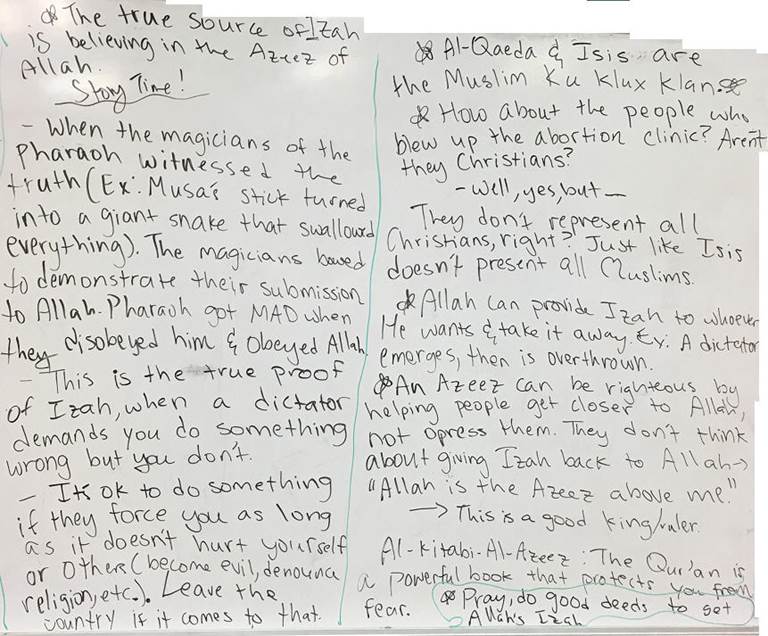 * The true source of Izah
is believing in the Azeez of
Allah.
Story Time!
- When the magicians of the
Pharaoh witnessed the
truth (Ex: Musa's stick turned
into a giant snake that swallowed
everything). The magicians bowed
to demonstrate their submission
to Allah. Pharaoh got MAD when
they disobeyed him & Obeyed Allah.
- This is the true proof
of Izah, when a dictator
demands you do something
wrong but you don't.
- It's ok to do something
if they force you as long
as it doesn't hurt yourself
or others (become evil, denounce
religion, etc.). Leave the
country if it comes to that.
* Al-Qaeda & Isis are
the Muslim Ku Klux Klan. *
* How about the people who
blew up the abortion clinic? Aren't
they Christians?
- Well, yes, but -
They don't represent all
Christians, right? Just like Isis
doesn't present all Muslims.
* Allah can provide Izah to whoever
He wants & take it away. Ex: A dictator
emerges, then is overthrown.
* An Azeez can be righteous by
helping people get closer to Allah,
not opress them. They don't think
about giving Izah back to Allah →
"Allah is the Azeez above me."
→ This is a good king/ruler.
Al-Kitabi-Al-Azeez: The Qur'an is
a powerful book that protects you from
fear. * Pray, do good deeds to get
Allah's Izah